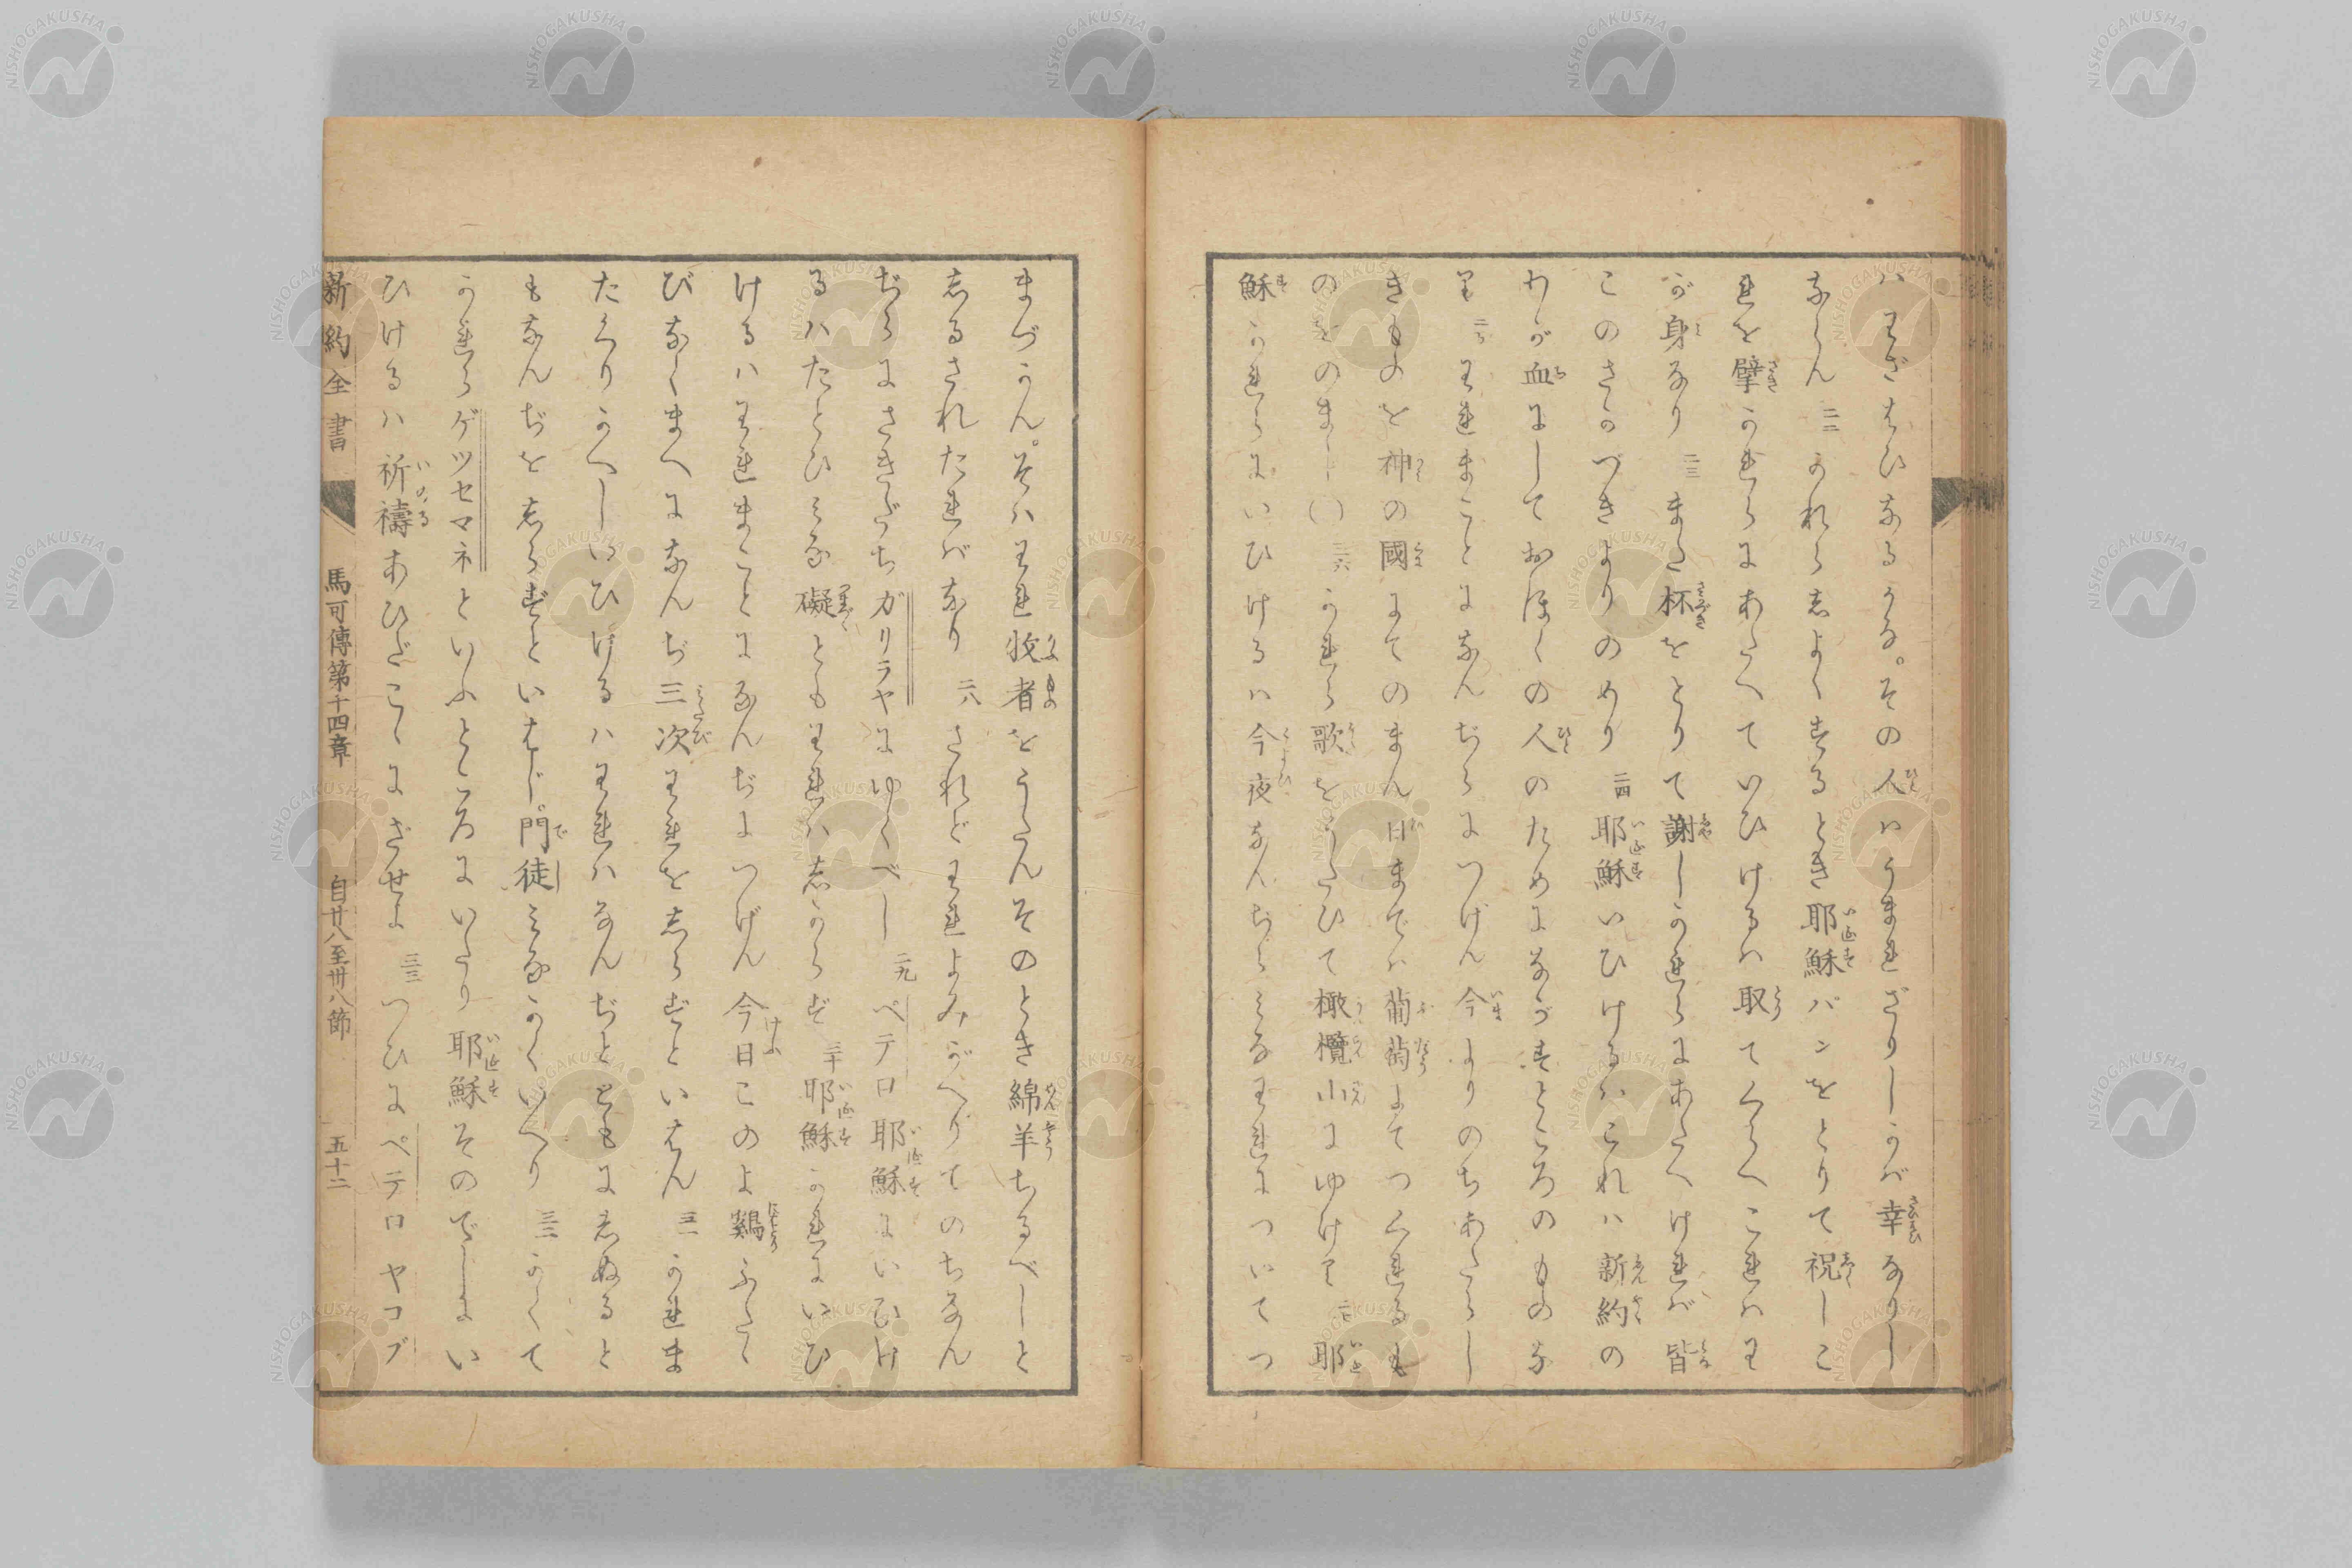 ハわざはひなるかな。その人ハうまれざりしかバ幸なりし
ならん 二二 かれら志よくするとき耶穌パンをとりて祝しこ
れを擘かれらにあたへていひけるハ取てくらへこれハわ
が身なり 二三 また杯をとりて謝しかれらにあたへけれバ皆
このさかづきよりのめり 二四 耶穌いひけるハこれハ新約の
わが血にしておほくの人のためにながすところのものな
り 二五 われまことになんぢらにつげん今よりのちあたらし
きものを神の國にてのまん日までハ葡萄にてつくれるも
のをのまじ 二六 かれら歌をうたひて橄欖山にゆけり 二七 耶
穌かれらにいひけるハ今夜なんぢらみなわれについてつ
まづかん。そハわれ牧者をうたんそのとき綿羊ちるべしと
志るされたれバなり 二八 されどわれよみがへりてのちなん
ぢらにさきだちガリラヤにゆくべし 二九 ペテロ耶穌にいひけ
るハたとひみな礙ともわれハ志からず 三十 耶穌かれにいひ
けるハわれまことになんぢにつげん今日このよ鷄ふたゝ
びなくまへになんぢ三次われを志らずといはん 三一 かれま
たくりかへしいひけるハわれハなんぢとともに志ぬると
もなんぢを志らずといはじ。門徒みなかくいへり 三二 かくて
かれらゲツセマネといふところにいたり耶穌そのでしにい
ひけるハ祈禱あひだこゝにざせよ 三三 つひにペテロヤコブ
新約全書 馬可傳第十四章 自廿八至卅八節 五十二